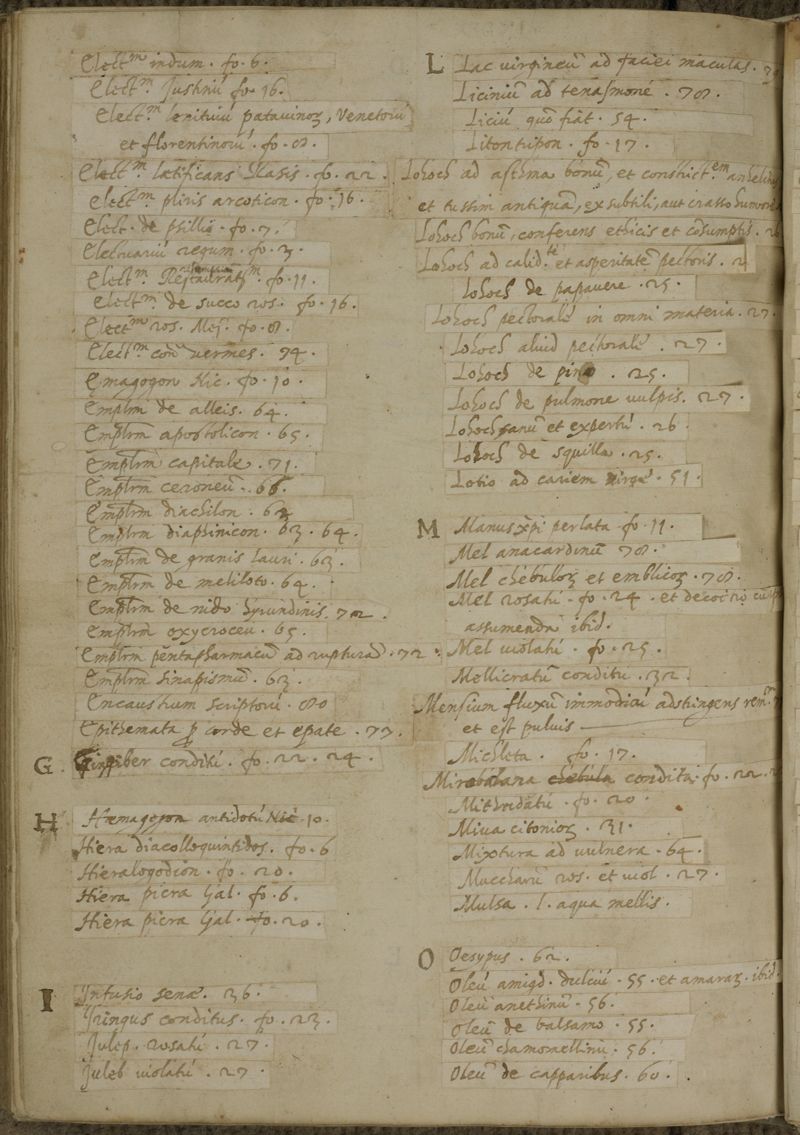 Elect.m indum . fo. 6.
Elect.m Justinū fo. 16.
Elect.m lenitiuū patauinoꝝ, Venetorū
et florentinorū . fo. 8.
Elect.m lætificans Rasis . fo. 22.
Elect.m pliris arcoticon . fo. 16.
Elect. de psillio . fo. 7.
Electuariū regum . fo. 3.
Elect.m fo. 11.
Elect.m de succo ros. fo. 16.
Elect.m ros. Mes. fo. 8.
Elect.m con̄ vermes . 74.
Emagogon Nic. fo. 10.
Emplr̄m de alleis. 64.
Emplr̄m apostolicon . 65.
Emplr̄m capitale . 71.
Emplr̄m ceroneū . 66.
Emplr̄m diachilon .
Emplr̄m diaphinicon . 63. 64.
Emplr̄m de granis lauri . 63.
Emplr̄m de meliloto . 64.
Emplr̄m de nido hyrundinis. 72.
Emplr̄m oxycroceū . 65.
Emplr̄m pentapharmacū ad rupturā . 72.
Emplr̄m sinapismū . 63.
Encaustum scriptoriū . 80
Epithemata ꝓ corde et epate . 77.
G. Zinziber conditū . fo. 22. 24.
H Hæmagogon antidotū Nic . 10.
Hiera diacolloquintidos. fo. 6
Hieralogodion . fo. 20.
Hiera picra Gal. fo. 6.
Hiera picra Gal. fo. 20.
I Infusio senæ. 36.
Iringus conditus . fo. 23.
Julep. rosatū . 27.
Juleb violatū . 27.
L Lac virgineū ad faciei maculas.
Liciniū ad tenasmonē . 78.
Liciū quō fiat . 54.
Litontripon . fo. 17.
Lohoch ad asthma bonū, et constrict.em
et tussim antiquā, ex subtili, aut crasso humore
Lohoch bonū, conferens ethicis et cōsumptis.
Lohoch ad calid.te et asperitatē pectoris.
Lohoch de papauere . 25.
Lohoch pectoralē in omni materia . 27.
Lohoch aliud pectoralē . 27.
Lohoch de pino . 25.
Lohoch de pulmone vulpis. 27.
Lohoch sanū et expertū . 26
Lohoch de squilla . 25.
Lotio ad cariem virgæ . 51.
M Manus xp̄i perlata fo. 11.
Mel anacardinū 78.
Mel chebuloꝝ et emblicoꝝ . 78.
Mel rosatū . fo. 24 . et decoctio
assumenda ibid.
Mel violatū . fo. 25.
Mellicratū conditū . 32.
Mensium fluxū immodicū adstringens rem.
et est puluis
Michleta . fo. 17.
Mirabalana chebula condita. fo. 22.
Mithridatū . fo. 20.
Miua citonioꝝ . 31.
Mixtura ad vulnera . 64.
Muccharū ros. et viol . 27.
Mulsa . l. aqua mellis.
O Oesypus . 62.
Oleū amigd. dulciū . 55. et amaraꝝ. ibid.
Oleū anethinū . 56.
Oleū de balsamo . 55.
Oleū chamomellinū . 56.
Oleū de capparibus . 60.